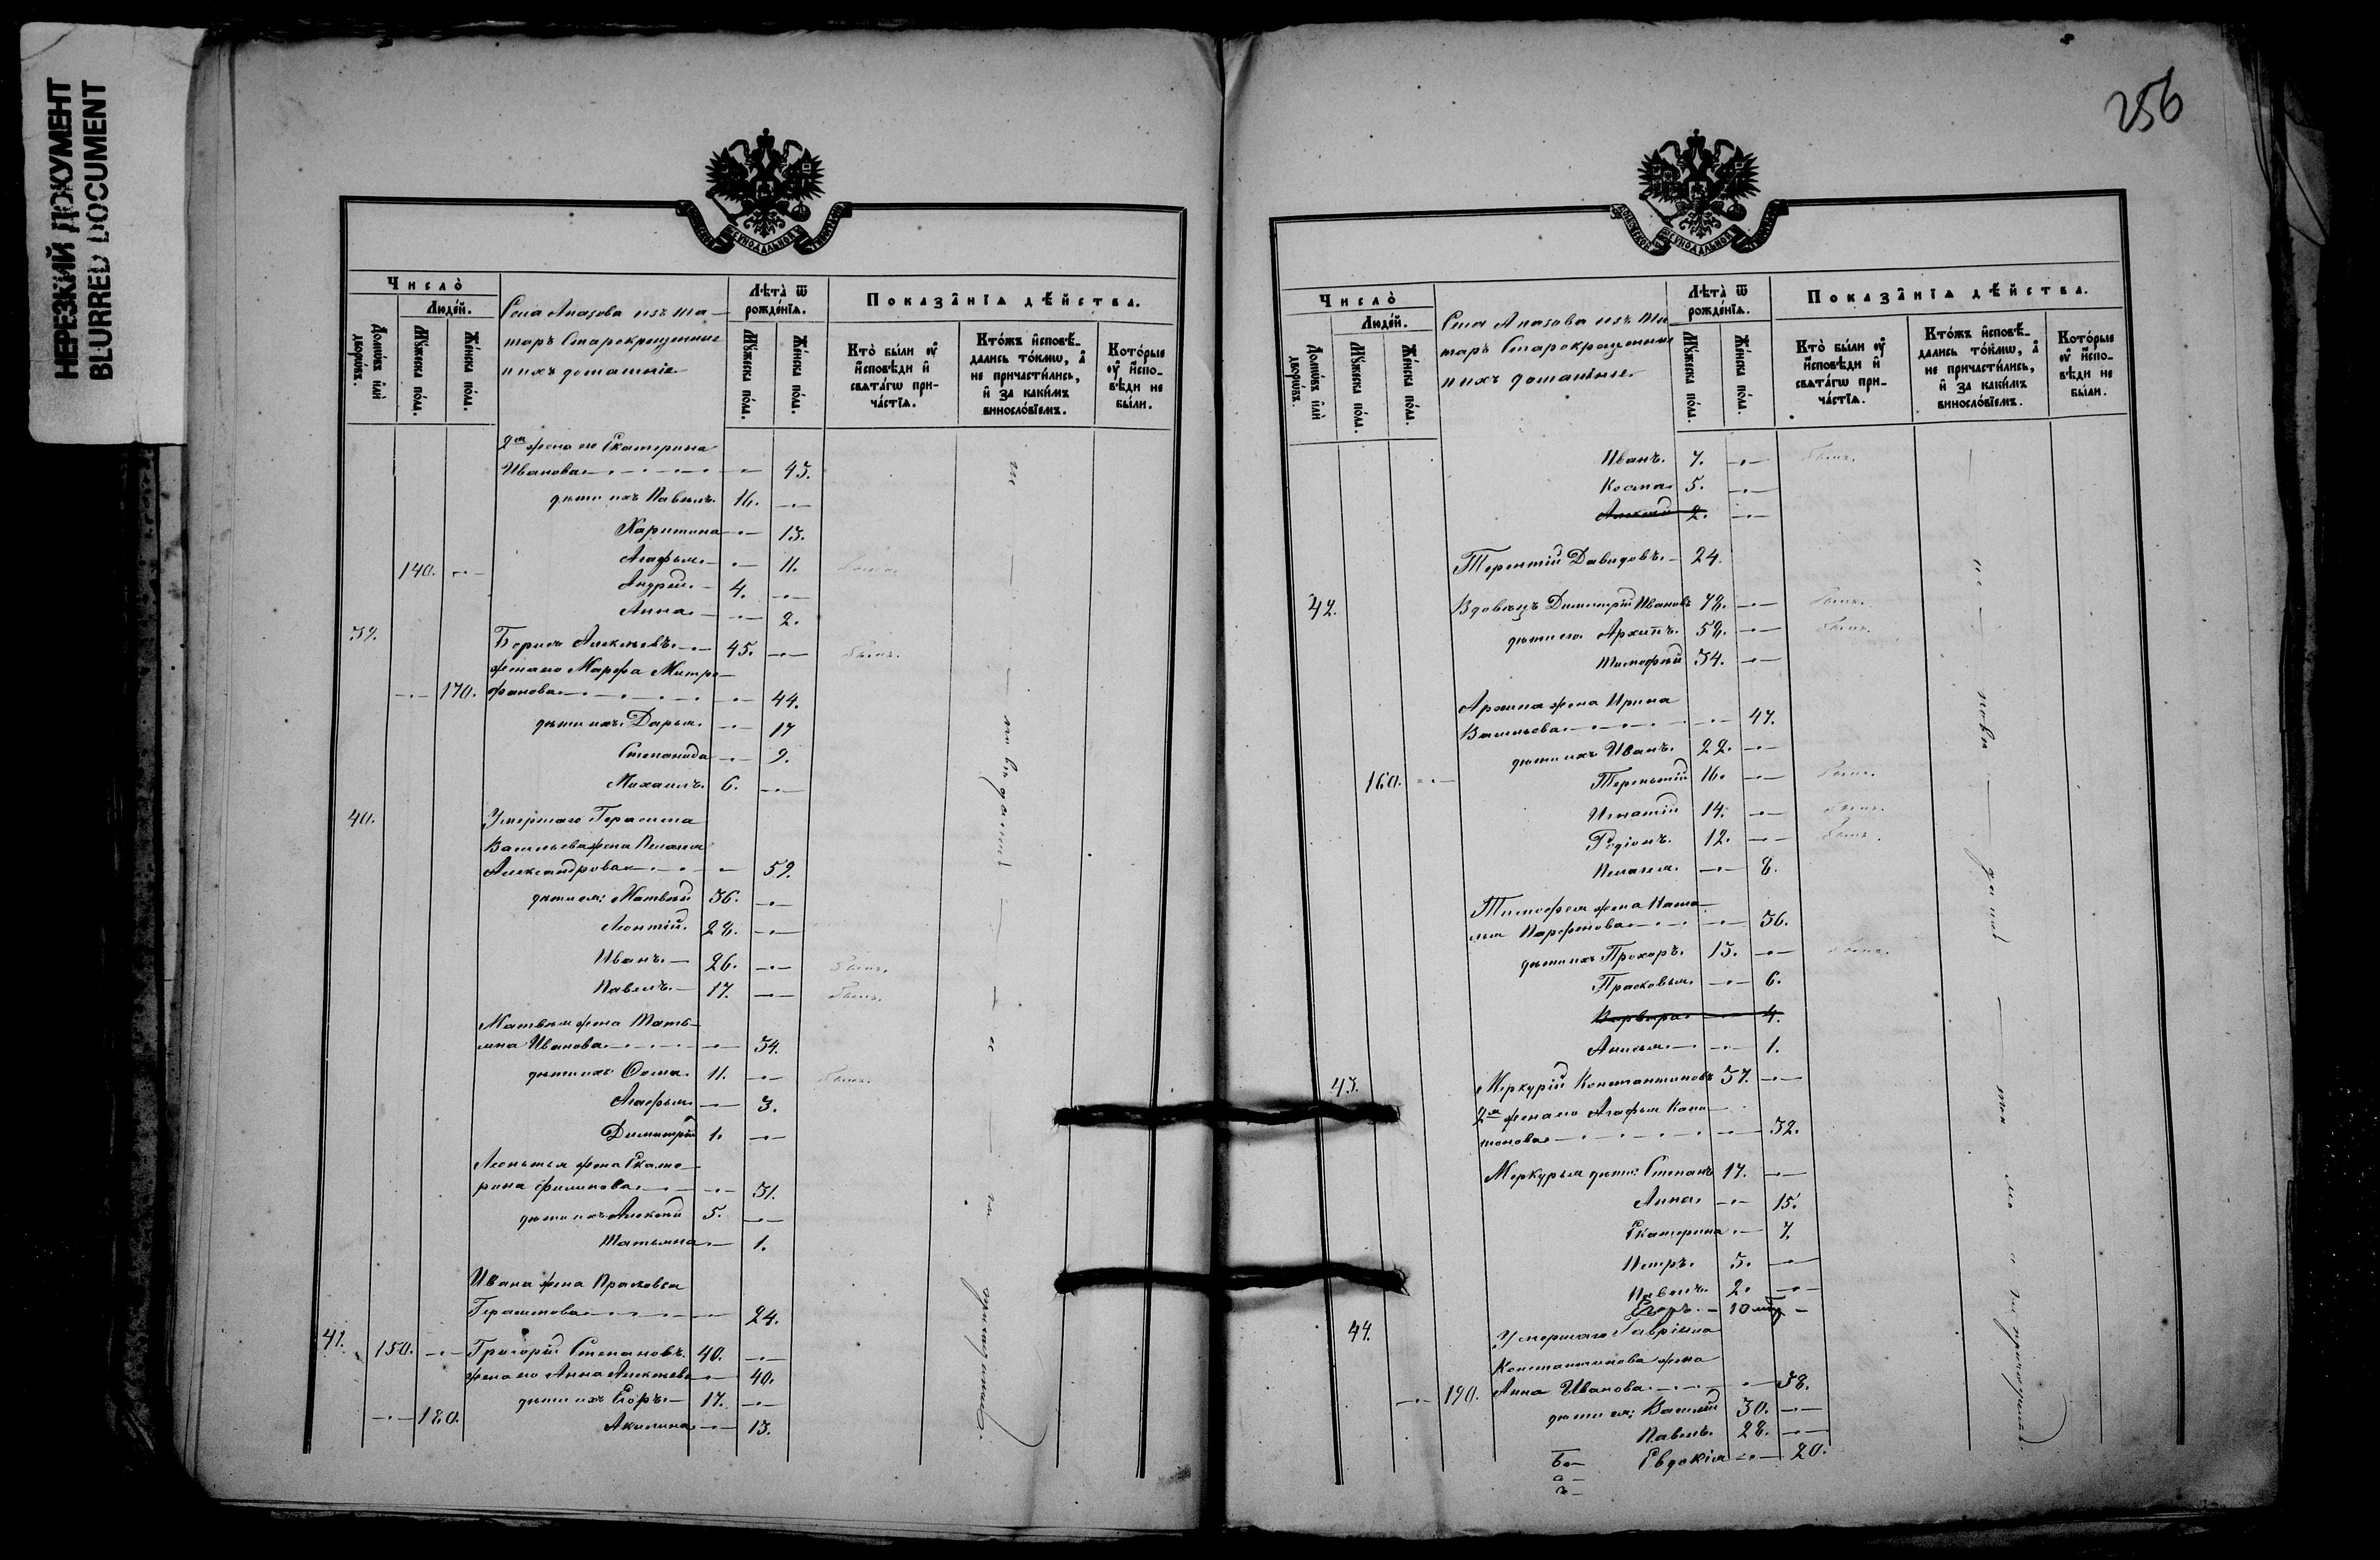 НЕРЕЗКИЙ ДОКУМЕНТ
BLURRED DOCUMENT
Число̀
Людей.
Домѡвъ и҆лѝ дворѡвъ.
Мꙋжеска пола.
Женска пола.
Села Апазова изъ та-
таръ Старокрещенные
и ихъ домашніе
Лѣта̀ ѿ рожденїѧ.
Мꙋжеска пола.
Женска пола.
Показа̑нїѧ дѣйства.
Кто̀ были ᲂу҆
и҆сповѣди и҆
свѧтагѡ при-
частїѧ.
Кто́жъ и҆сповѣ-
дались то́кмѡ, а҆
не причасти́лись,
и҆ за какимъ
винословїемъ.
Которые
ᲂу҆ и҆спо-
вѣди не
были.
2я жена его Екатерина
Иванова 43.
дѣти ихъ Павелъ. 16.
Харитина 13.
140. Агафья 11.
Андрей 4.
Анна 2.
39. Борисъ Алексѣевъ. 45. былъ.
жена его Марфа Митро-
170. фанова 44.
дѣти ихъ Дарья. 17
Степанида 9.
Михаилъ. 6.
40. Умершаго Герасима
Васильева жена Пелагея
Александрова 59.
дѣти ея: Матвѣй 36.
Леонтій. 28.
Иванъ. 26. былъ.
Павелъ. 17. былъ.
Матвѣя жена Тать-
яна Иванова 34.
дѣти ихъ Ѳома. 11. былъ.
Агафья 3.
Димитрій 1.
Леонтья жена Екате-
рина Филипова 31.
дѣти ихъ Алексѣй 5.
Татьяна 1.
Ивана жена Прасковья
Герасимова 24.
41. 150. Григорій Степановъ. 40.
жена его Анна Алексѣева 40.
дѣти ихъ Егоръ. 17.
180. Акилина 13.
256
Число̀
Людей.
Домѡвъ и҆лѝ дворѡвъ.
Мꙋжеска пола.
Женска пола.
Села Апазова изъ та
таръ Старокрещенные
и ихъ домашніе
Лѣта̀ ѿ
рожденїѧ.
Мꙋжеска пола.
Женска пола.
Показа̑нїѧ дѣйства.
Кто̀ были ᲂу҆
и҆сповѣди и҆
свѧтагѡ при-
частїѧ.
Кто́жъ и҆сповѣ-
дались то́кмѡ, а҆
не причасти́лись,
и҆ за какимъ
винословїемъ.
Которые
ᲂу҆ и҆спо-
вѣди не
были.
Иванъ. 7. былъ.
Косма 5.
Алексѣй 2.
Терентій Давидовъ. 24.
42. Вдовецъ Димитрій Ивановъ 78. былъ.
дѣти его Архипъ. 58. былъ.
Тимофей 34.
Архипа жена Ирина
Васильева 47.
дѣти ихъ Иванъ. 22.
160. Терентій 16. былъ.
Игнатій 14. былъ.
Родіонъ. 12. былъ.
Пелагея. 8.
Тимофея жена Ната-
лья Парфенова 36.
дѣти ихъ Прохоръ. 13. былъ.
Прасковья. 6.
Варвара 4.
Анисья 1.
43. Меркурій Константиновъ 37.
2я жена его Агафья Капи-
тонова 32.
Меркурья дѣти: Степанъ 17.
Анна. 15.
Екатерина 7.
Петръ. 5.
Павелъ. 2.
Егоръ. 10 мѣ
44. Умершаго Гавріила
Константинова жена
190. Анна Иванова 58.
дѣти ея: Василій 30.
Павелъ. 28.
Евдокія 20.